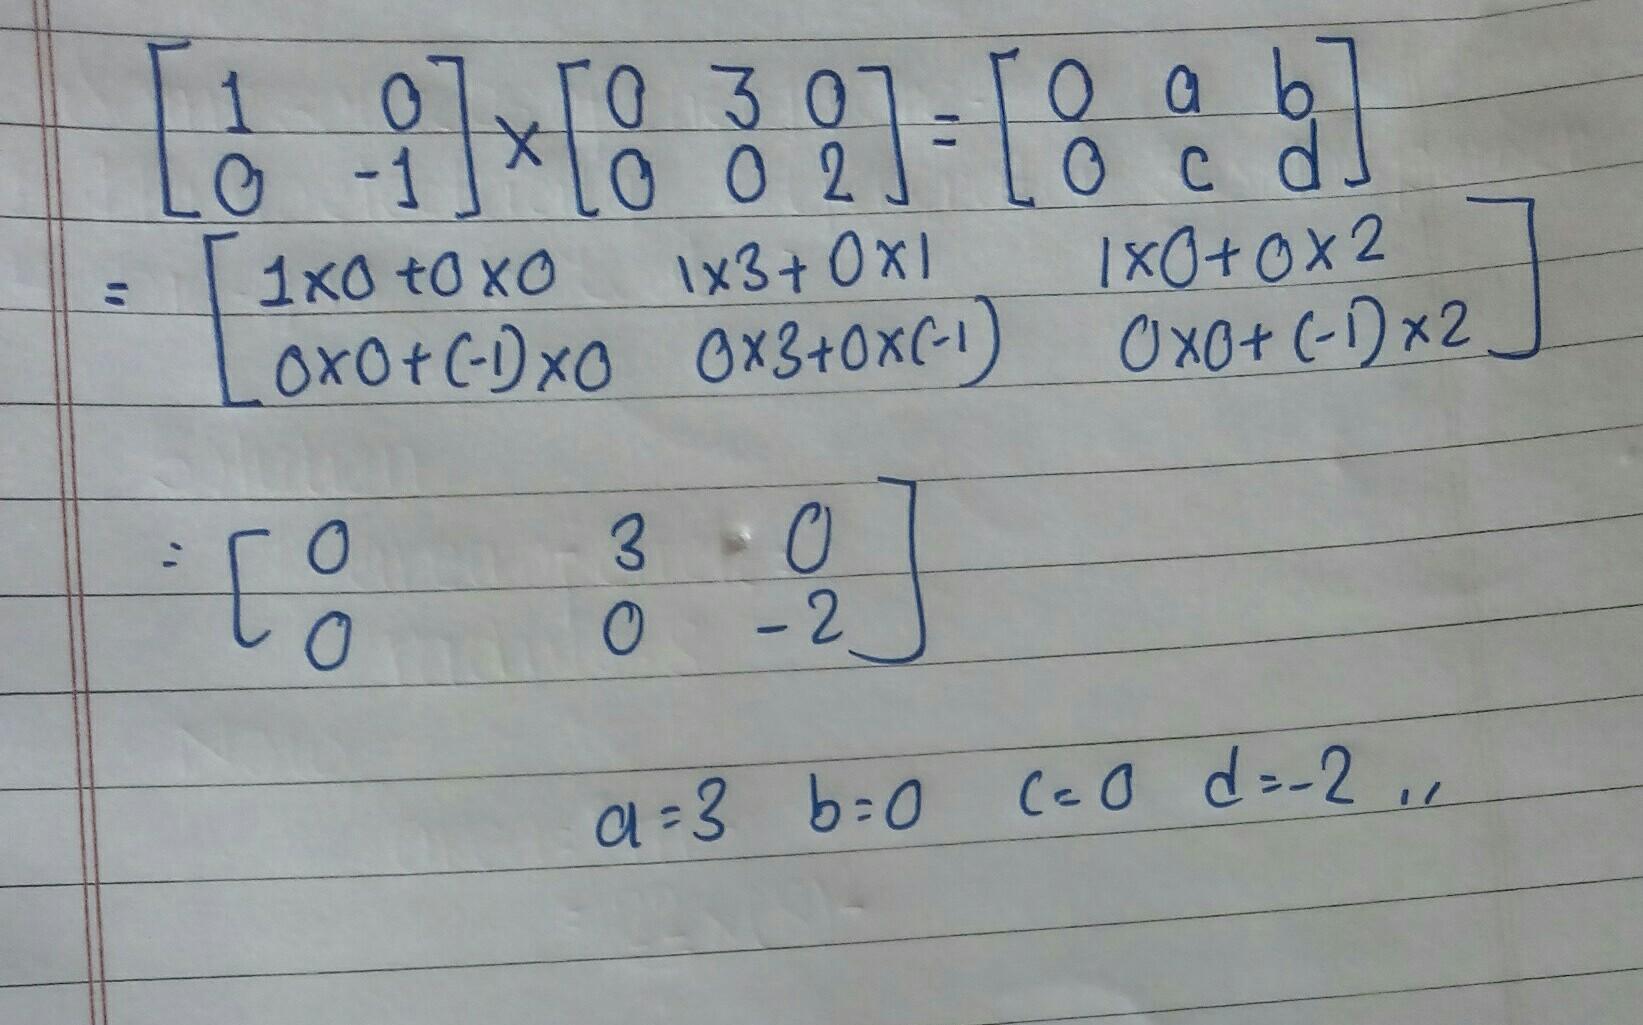 [1 0] × [0 3 0] = [0 a b]
[0 -1] [0 0 2] [0 c d]
= [1×0+0×0 1×3+0×1 1×0+0×2]
[0×0+(-1)×0 0×3+0×(-1) 0×0+(-1)×2]
= [0 3 0]
[0 0 -2]
a=3 b=0 c=0 d=-2 ,,